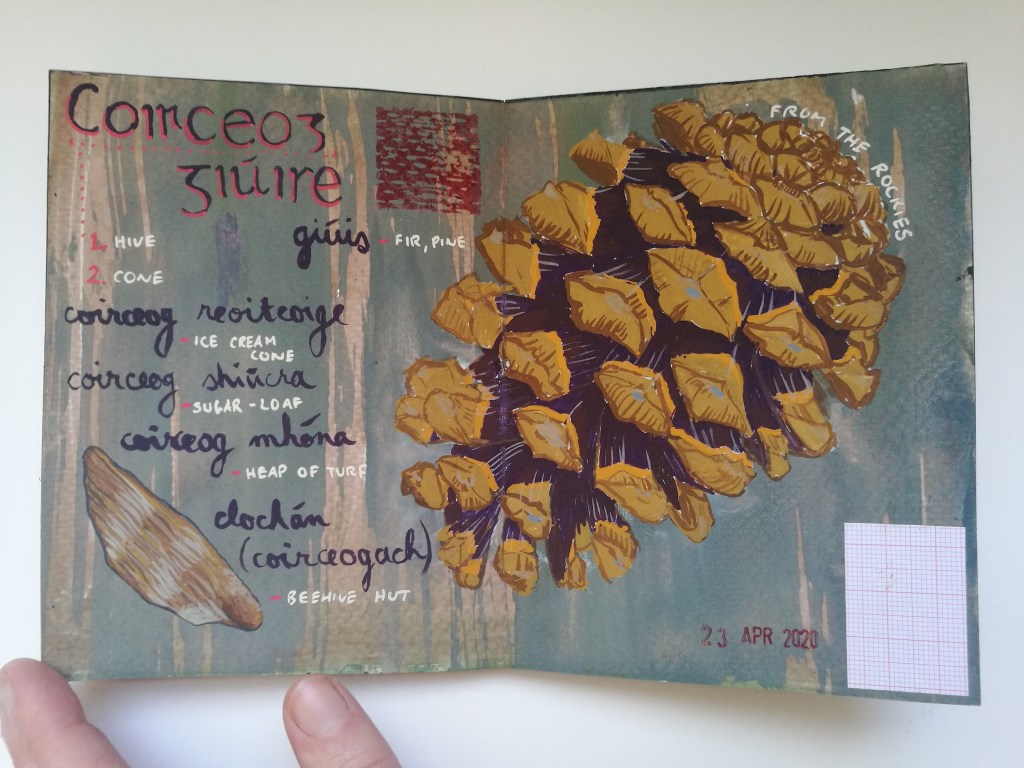 Coirceog
giúire
1. HIVE
2. CONE
giúis - FIR, PINE
coirceog reoiteoige
- ICE CREAM
CONE
coirceog shiúcra
- SUGAR-LOAF
coirceog mhóna
- HEAP OF TURF
clochán
(coirceogach)
- BEEHIVE HUT
FROM THE ROCKIES
23 APR 2020